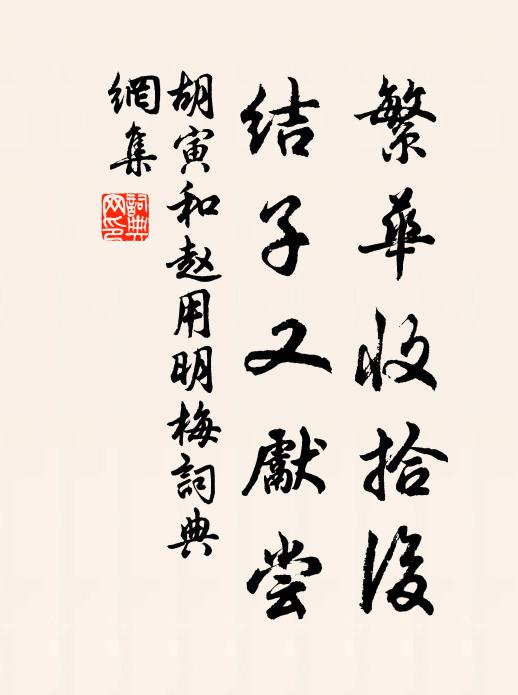 繁華收拾後
結子又獻嘗
胡寅和赵用明梅詞典
網集
詞典网印